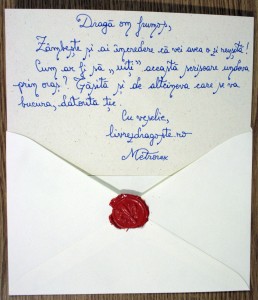 Dragă om frumos,
Zâmbește și ai încredere că vei avea o zi reușită!
Cum ar fi să „uiți" această scrisoare undeva
prin oraș? Găsită și de altcineva care se va
bucura, datorită ție.
Cu veselie,
livrezdragoste.ro
Metrorex